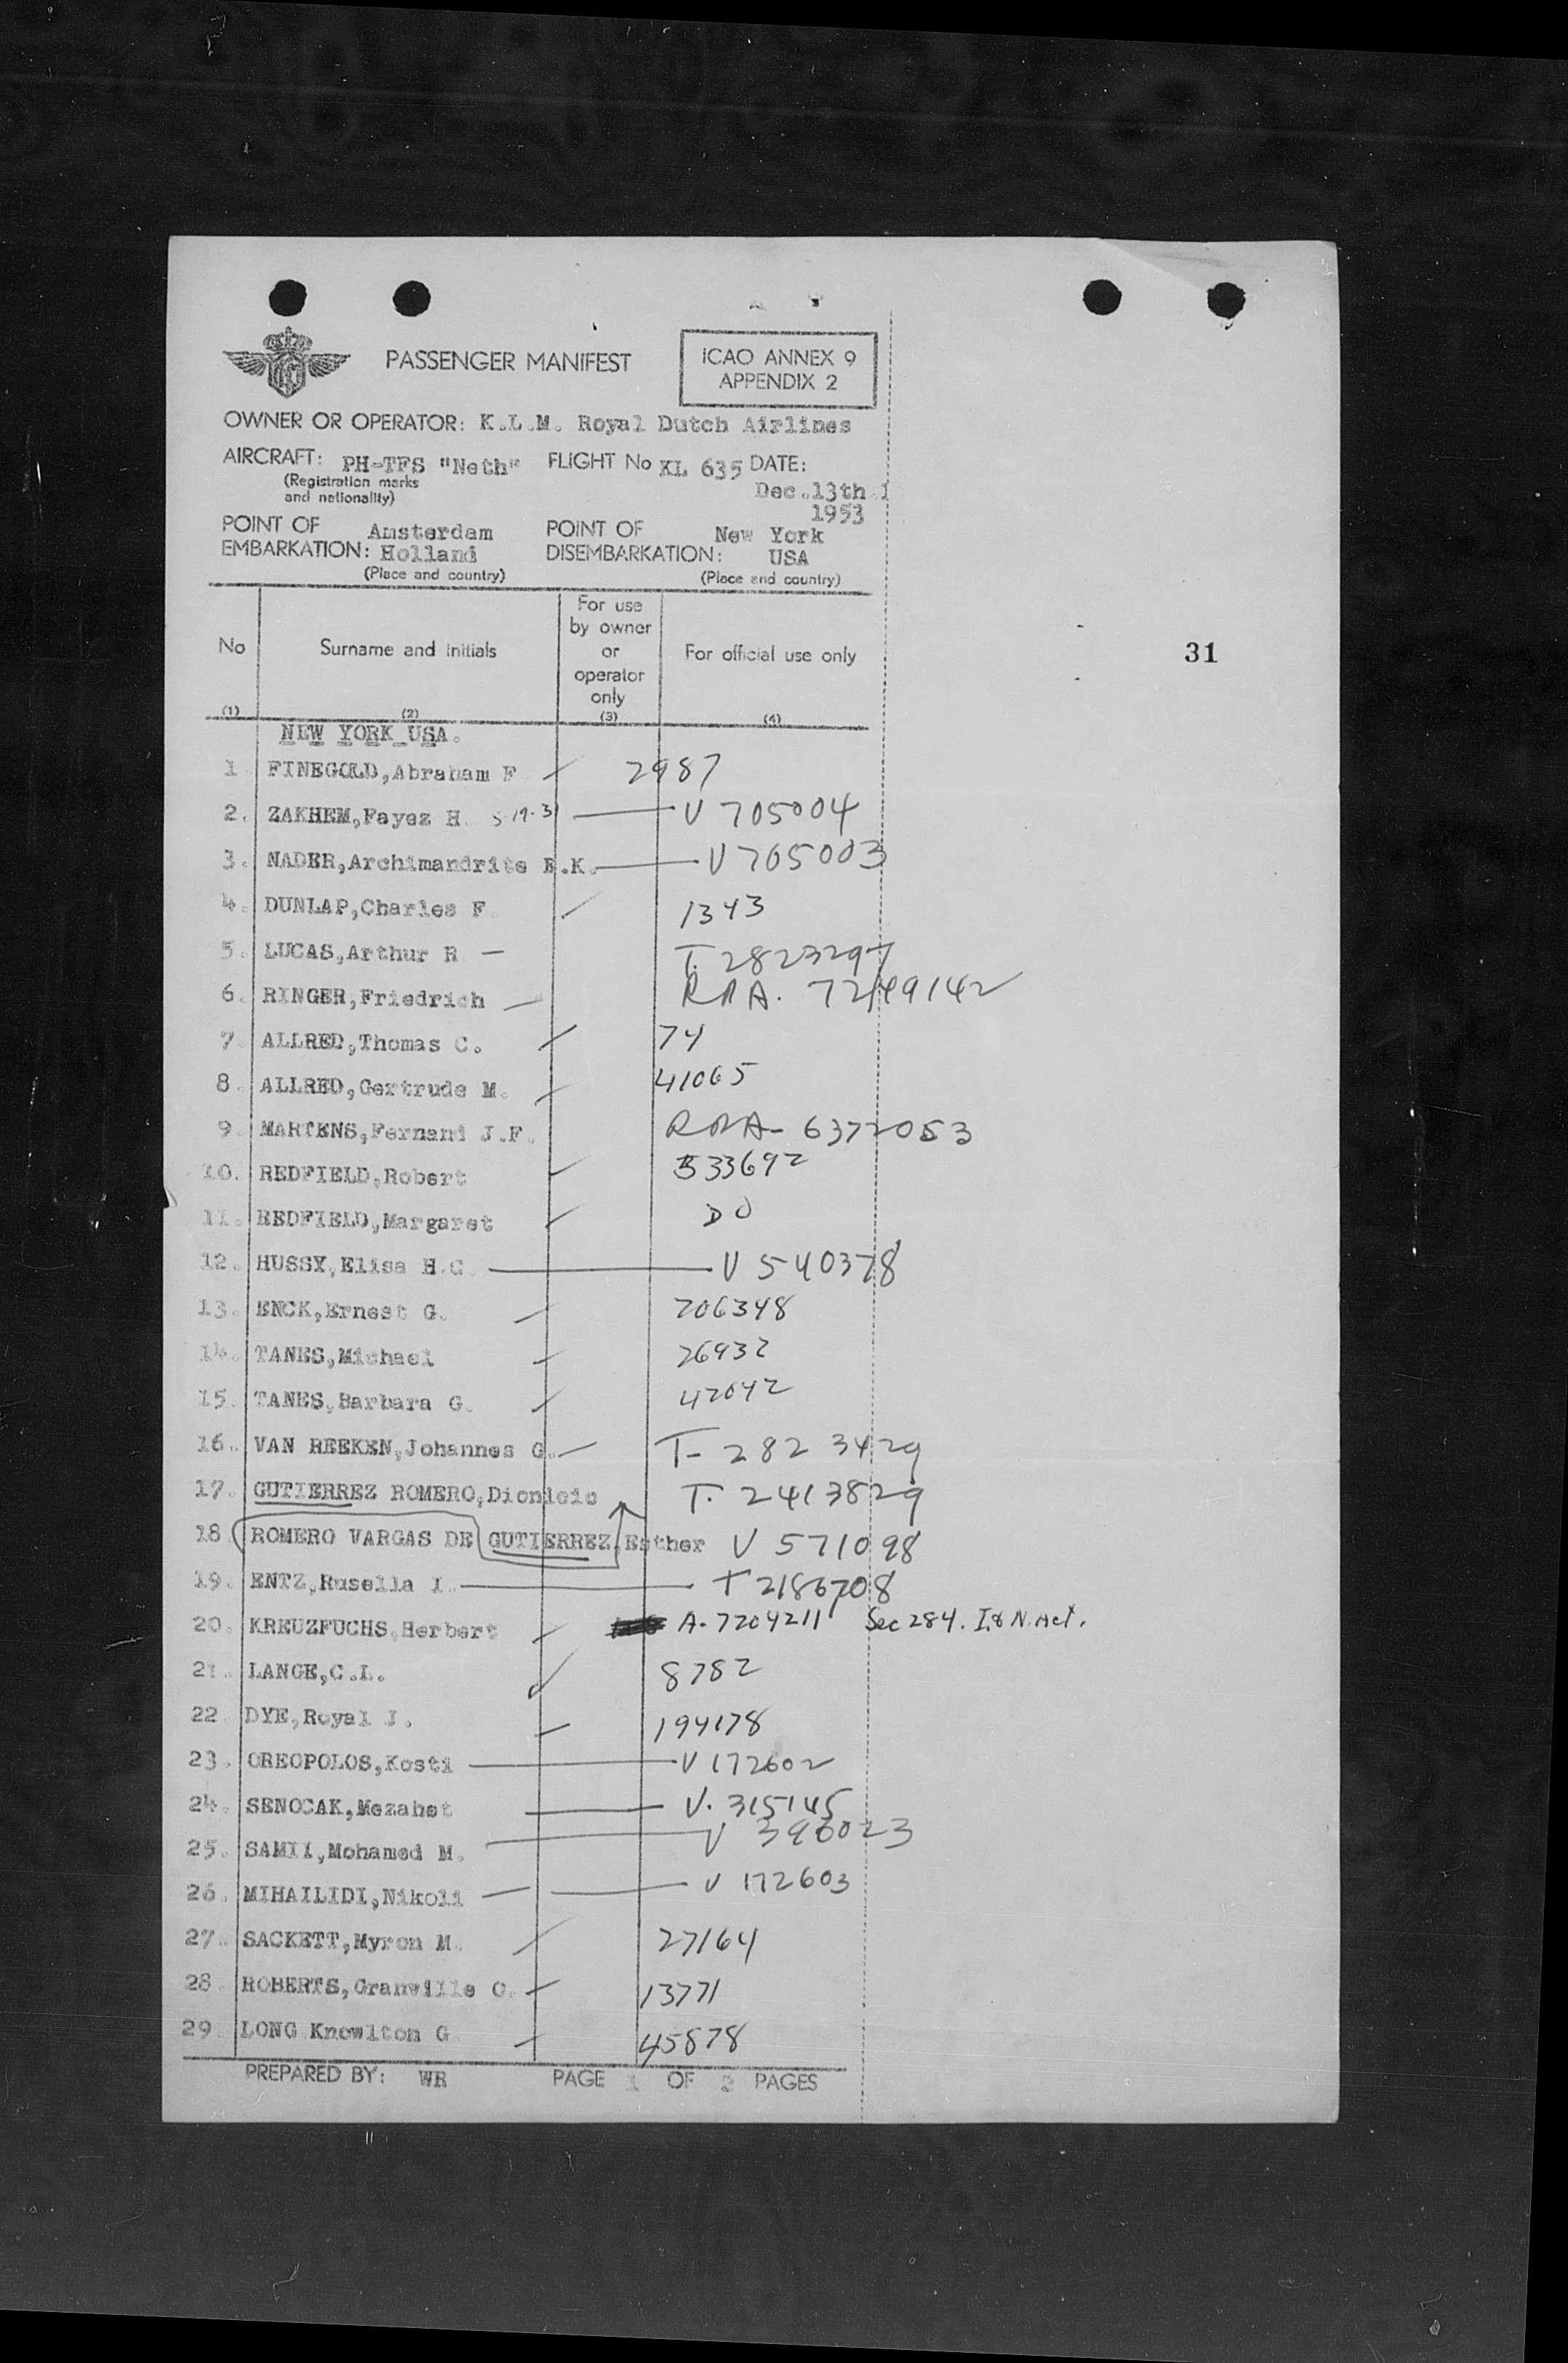 PASSENGER MANIFEST
ICAO ANNEX 9
APPENDIX 2
OWNER OR OPERATOR: K.L.M. Royal Dutch Airlines
AIRCRAFT: PH-TFS "Neth" FLIGHT No KL 635 DATE:
(Registration marks
and nationality)
Dec.13th
1953
POINT OF
EMBARKATION: Amsterdam
Holland
(Place and country)
POINT OF
DISEMBARKATION: New York
USA
(Place and country)
No
(1)
Surname and initials
(2)
For use
by owner
or
operator
only
(3)
For official use only
(4)
31
NEW YORK USA.
1. FINEGOLD,Abraham F 2987
2. ZAKHEM,Fayez H. 5-19-31 V 705004
3. NADER,Archimandrite E.K. V 705003
4. DUNLAP,Charles F 1343
5. LUCAS,Arthur R T. 2823297
6. RINGER,Friedrich
7. ALLRED,Thomas C. 74
8. ALLRED,Gertrude M. 41065
9. MARTENS,Fernand J.F. 6372053
10. REDFIELD,Robert 533692
11. REDFIELD,Margaret DO
12. HUSSY,Elisa H.C. V 540378
13. ENCK,Ernest G. 206348
14. TANES,Michael 26932
15. TANES,Barbara G. 42042
16. VAN REEKEN,Johannes G. T- 2823429
17. GUTIERREZ ROMERO,Dionicio T. 2413829
18 ROMERO VARGAS DE GUTIERREZ,Esther V 571098
19. ENTZ,Rusella I. T 2186708
20. KREUZFUCHS,Herbert A-7204211 Sec 284. I.&N.Act.
21. LANGE,C.L. 8782
22. DYE,Royal J. 194178
23. OREOPOLOS,Kosti V 172602
24. SENOCAK,Mezahet V. 315145
25. SAMII,Mohamed M. V 396023
26. MIHAILIDI,Nikoli V 172603
27. SACKETT,Myron M. 27164
28. ROBERTS,Granville O. 13771
29. LONG Knowlton G 45878
PREPARED BY: WR PAGE 1 OF 2 PAGES